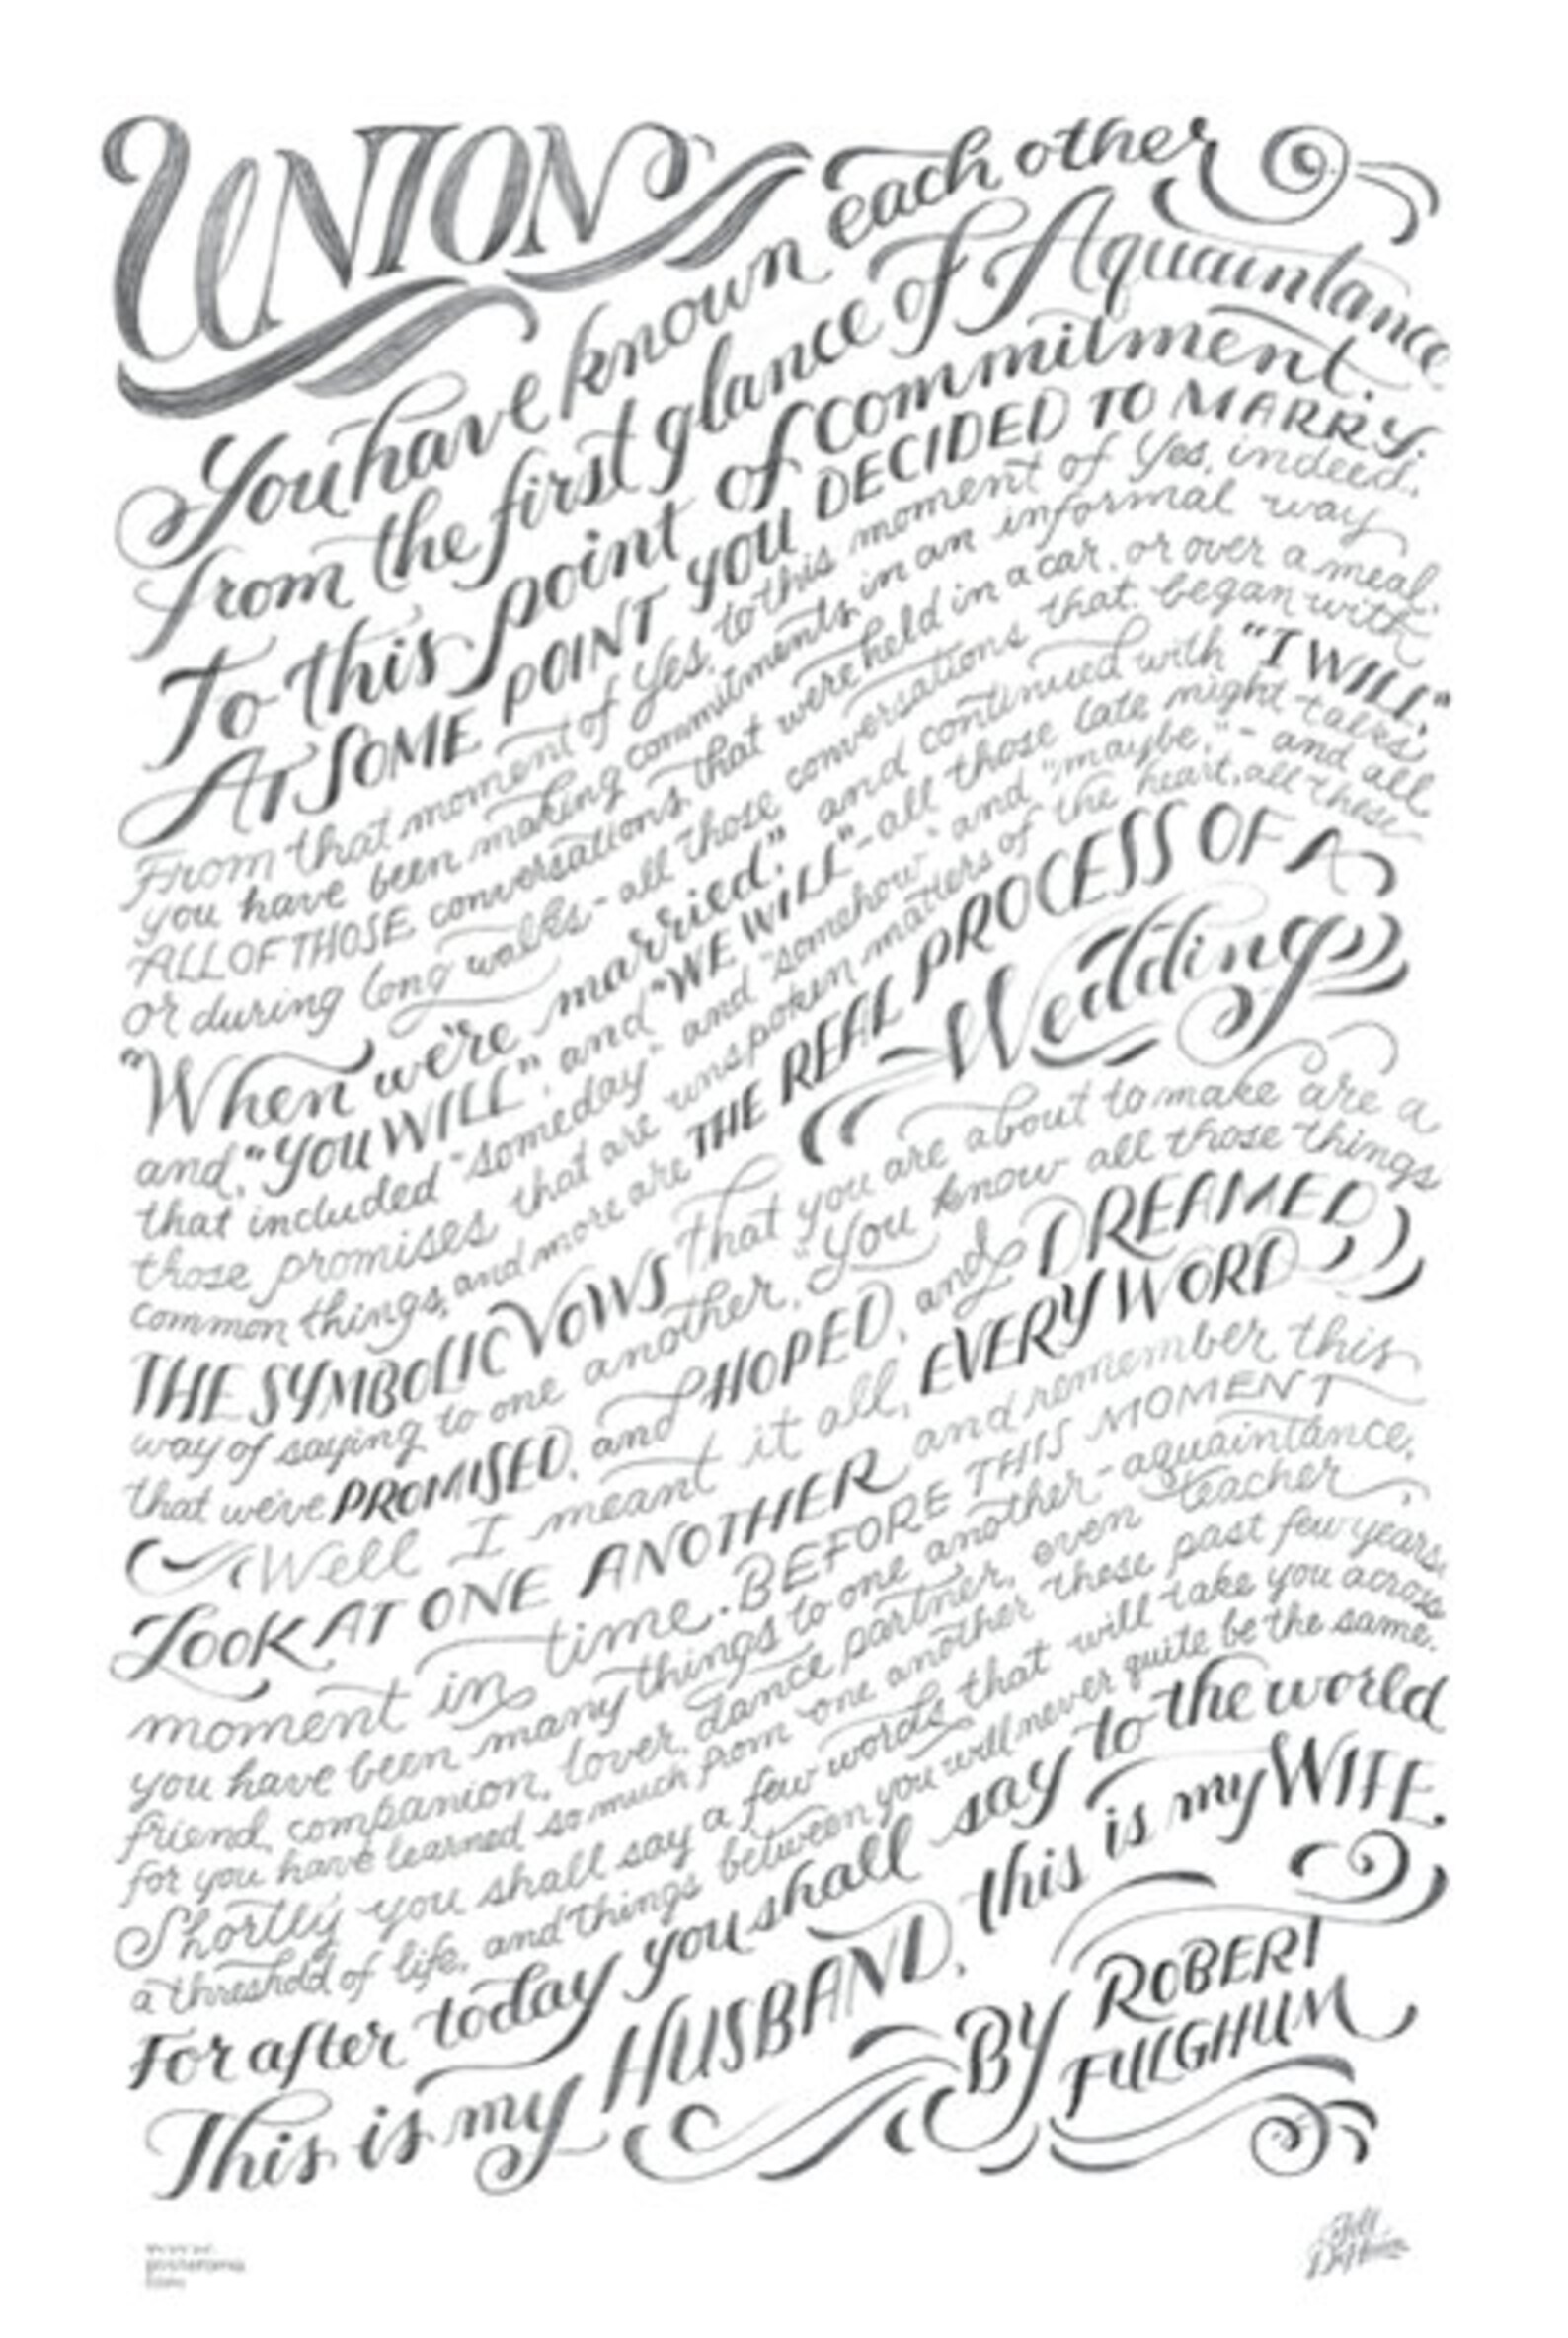 UNION
You have known each other
from the first glance of Aquaintance
To this point of commitment.
AT SOME POINT YOU DECIDED TO MARRY.
From that moment of Yes, to this moment of Yes, indeed,
you have been making commitments in an informal way
ALL OF THOSE conversations that were held in a car, or over a meal,
or during long walks - all those conversations that began with
"When we're married," and continued with "I WILL,"
and, "YOU WILL", and "WE WILL" - all those late night talks
that included "someday" and "somehow" and "maybe," - and all
those promises that are unspoken matters of the heart, all these
common things, and more are THE REAL PROCESS OF A
Wedding
THE SYMBOLIC VOWS that you are about to make are a
way of saying to one another, "You know all those things
that we've PROMISED, and HOPED, and DREAMED
Well I meant it all, EVERY WORD
LOOK AT ONE ANOTHER and remember this
moment in time. BEFORE THIS MOMENT
you have been many things to one another - aquaintance,
friend, companion, lover, dance partner, even teacher,
for you have learned so much from one another these past few years.
Shortly you shall say a few words that will take you across
a threshold of life, and things between you will never quite be the same.
For after today you shall say to the world
This is my HUSBAND, this is my WIFE.
BY ROBERT
FULGHUM